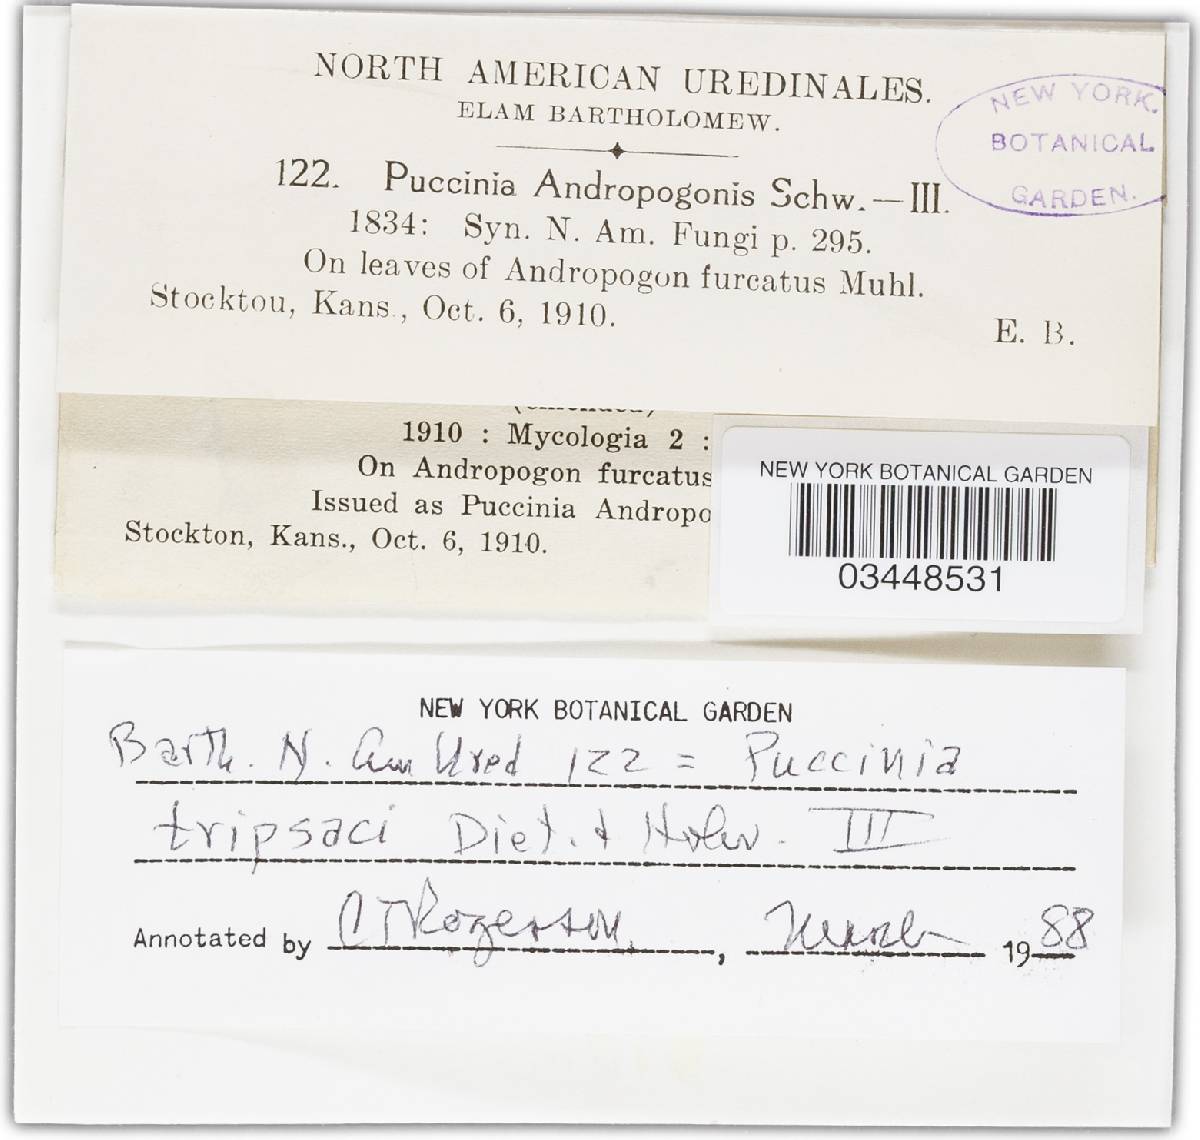 NORTH AMERICAN UREDINALES.
ELAM BARTHOLOMEW.
NEW YORK
BOTANICAL
GARDEN.
122. Puccinia Andropogonis Schw.—III.
1834: Syn. N. Am. Fungi p. 295.
On leaves of Andropogon furcatus Muhl.
Stocktou, Kans., Oct. 6, 1910.
E. B.
1910 : Mycologia 2 :
On Andropogon furcatus
Issued as Puccinia Andropo
Stockton, Kans., Oct. 6, 1910.
NEW YORK BOTANICAL GARDEN
03448531
NEW YORK BOTANICAL GARDEN
Barth. N. Am Ured 122 = Puccinia
tripsaci Diet. + Holw. III
Annotated by CT Rogerson, March 1988